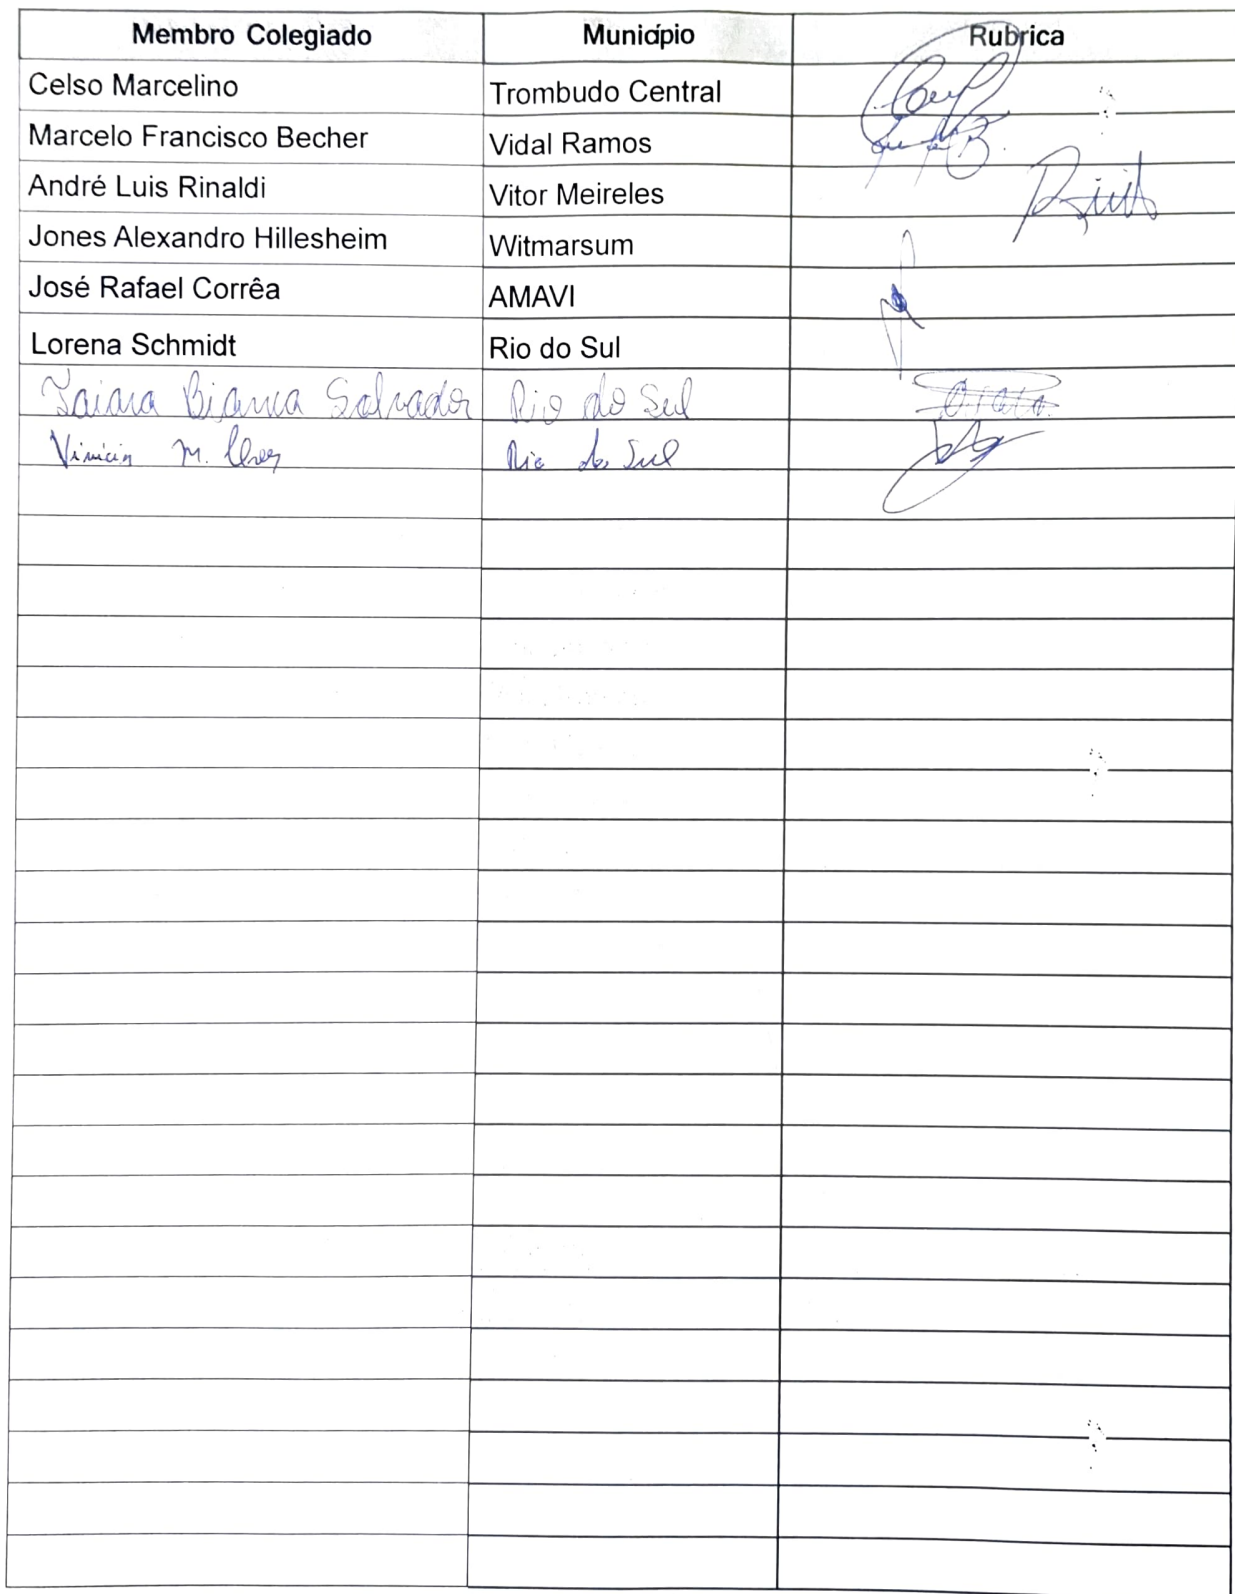 Membro Colegiado Município Rubrica
Celso Marcelino Trombudo Central
Marcelo Francisco Becher Vidal Ramos
André Luis Rinaldi Vitor Meireles
Jones Alexandro Hillesheim Witmarsum
José Rafael Corrêa AMAVI
Lorena Schmidt Rio do Sul
Taiara Bianca Salvador Rio do Sul
M. Rio do Sul